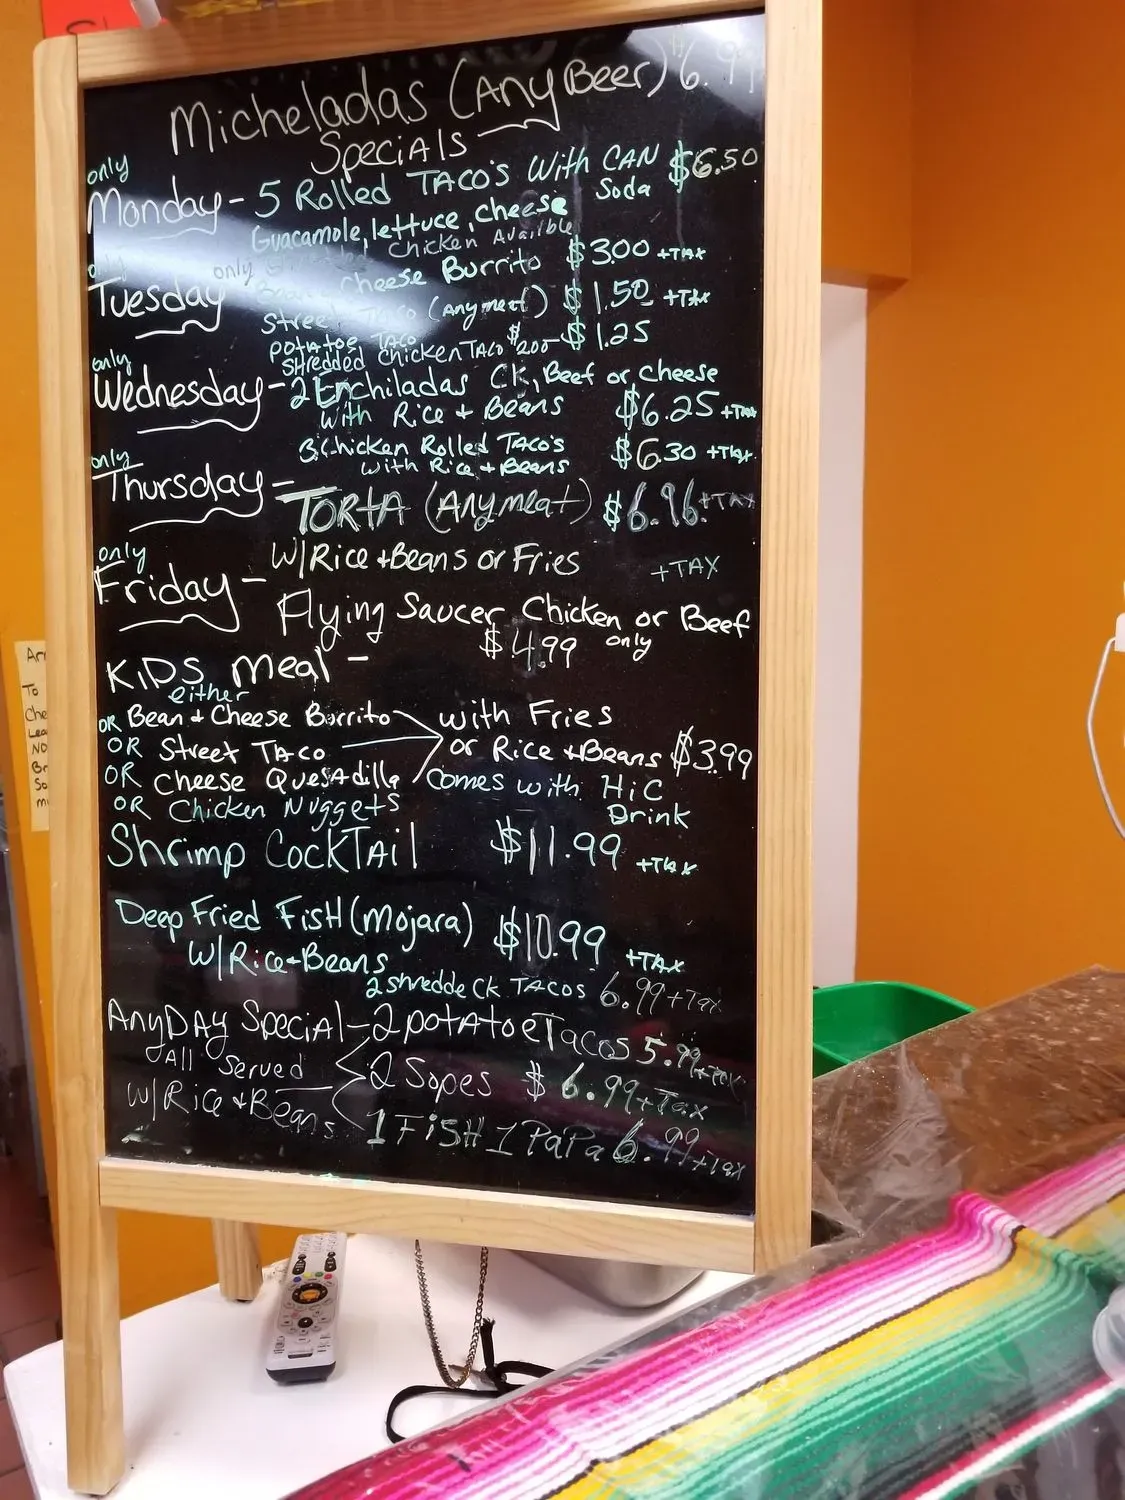 Micheladas (Any Beer) $6.99
Specials
only
Monday - 5 Rolled TACO's With CAN Soda $6.50
Guacamole, lettuce, cheese
Shredded Chicken Availble
only
Tuesday only Bean & cheese Burrito $3.00 +TAX
Street Taco (Any meat) $1.50 +TAX
potatoe TACO $1.25
Shredded Chicken TACO $2.00
only
Wednesday - 2 Enchiladas CK, Beef or Cheese
with Rice + Beans $6.25 +TAX
3 Chicken Rolled TACO's $6.30 +TAX
with Rice + Beans
only
Thursday - TORTA (Any meat) $6.96 +TAX
W/Rice + Beans or Fries +TAX
only
Friday - Flying Saucer Chicken or Beef
$4.99 only
KIDS Meal -
either
OR Bean + Cheese Borrito with Fries
OR Street TACO or Rice + Beans $3.99
OR Cheese Quesadilla Comes with HiC
OR Chicken Nuggets Drink
Shrimp CockTAil $11.99 +TAX
Deep Fried FisH (Mojara) $10.99
W/Rice + Beans +TAX
2 shredde CK TACOS 6.99 + Tax
AnyDAy SpeciAl - 2 potatoe Tacos 5.99 + Tax
All Served 2 Sopes $6.99 + Tax
W/Rice + Beans 1 FiSH 1 PaPa 6.99 + Tax